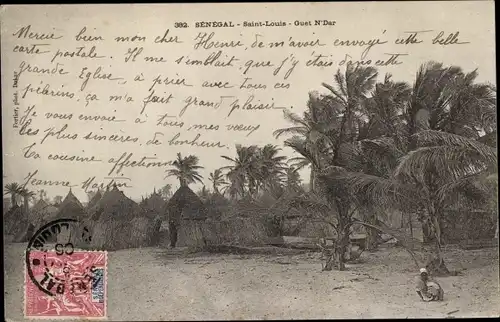 382. SÉNÉGAL - Saint-Louis - Guet N'Dar
Merci bien mon cher Henri, de m'avoir envoyé cette belle
carte postale. Il me semblait que j'y étais dans cette
grande Eglise, à prier avec tous ces
pélerins, ça m'a fait grand plaisir
Je vous envoie à tous, mes vœux
les plus sincères, de bonheur.
Ta cousine affectionnée
Jeanne Martin
Fortier, phot. Dakar